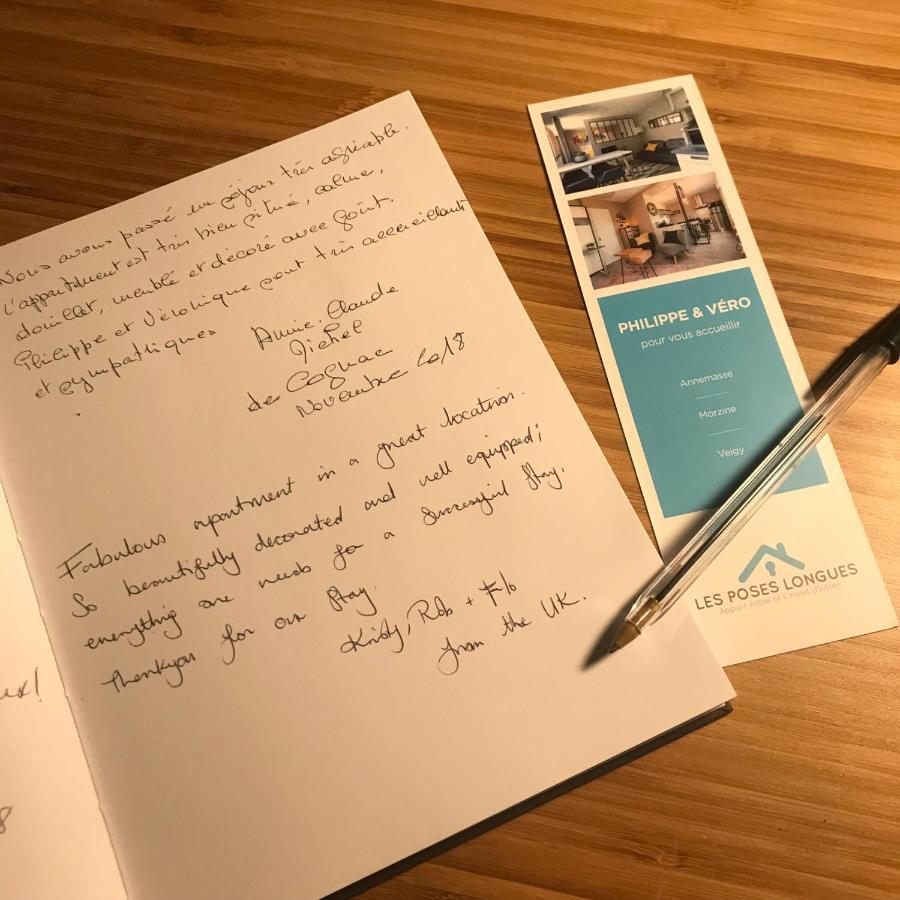 Nous avons passé un séjour très agréable.
l'appartement est très bien situé, calme,
douillet, meublé et décoré avec goût.
Philippe et Véronique sont très accueillants
et sympathiques
Annie-Claude
Michel
de Cognac
Novembre 2018
Fabulous apartment in a great location.
So beautifully decorated and well equipped;
everything one needs for a successful stay.
Thankyou for our stay.
Kirsty, Rob + Flo
from the UK.
PHILIPPE & VÉRO
pour vous accueillir
Annemasse
Morzine
Veigy
LES POSES LONGUES
Appart-hôtel et Chalet d'hôtes